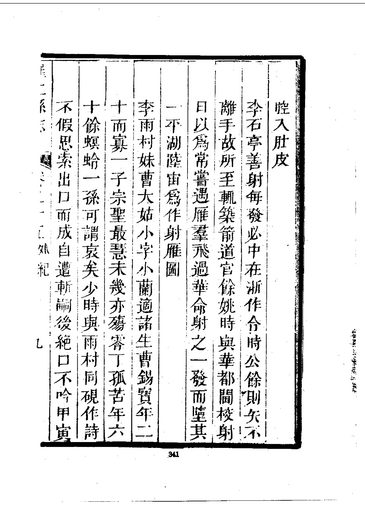 腔入肚皮
李石亭善射每發必中在浙作令時公餘則矢不
離手故所至輒築箭道官餘姚時與華都閫校射
日以爲常嘗遇雁羣飛過華命射之一發而墮其
一平湖陸宙爲作射雁圖
李雨村妹曹大姑小字小蘭適諸生曹錫寶年二
十而寡一子宗聖最慧未幾亦殤零丁孤苦年六
十餘螟蛉一孫可謂哀矣少時與雨村同硯作詩
不假思索出口而成自遭斬嗣後絕口不吟甲寅
羅江縣志
九
341